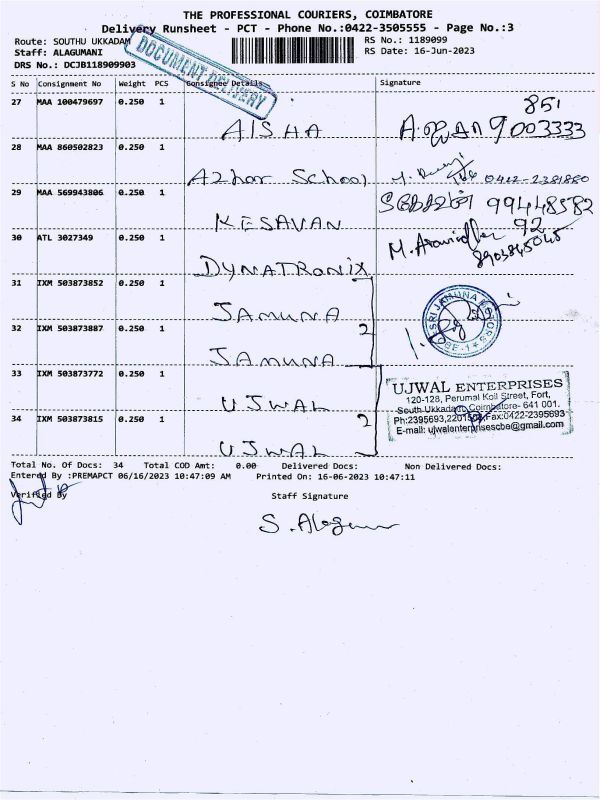 THE PROFESSIONAL COURIERS, COIMBATORE
Delivery Runsheet - PCT - Phone No.:0422-3505555 - Page No.:3
Route: SOUTHU UKKADAM
RS No.: 1189099
Staff: ALAGUMANI
RS Date: 16-Jun-2023
DRS No.: DCJB118909903
DOCUMENT DELIVERY
S No Consignment No Weight PCS Consignee Details Signature
27 MAA 100479697 0.250 1
AISHA
851
9003333
28 MAA 860502823 0.250 1
Azhar School
0422-2381880
29 MAA 569943806 0.250 1
KESAVAN
99448582
92
30 ATL 3027349 0.250 1
DYNATRONIX
8903845045
31 IXM 503873852 0.250 1
JAMUNA
32 IXM 503873887 0.250 1
2
JAMUNA
SRI JAMUNA MOTORS
33 IXM 503873772 0.250 1
UJWAL
34 IXM 503873815 0.250 1
2
UJWAL
UJWAL ENTERPRISES
120-128, Perumal Koil Street, Fort,
South Ukkadam, Coimbatore- 641 001.
Fax:0422-2395693
E-mail: ujwalenterprisescbe@gmail.com
Total No. Of Docs: 34 Total COD Amt: 0.00 Delivered Docs: Non Delivered Docs:
Entered By :PREMAPCT 06/16/2023 10:47:09 AM Printed On: 16-06-2023 10:47:11
Verified By Staff Signature